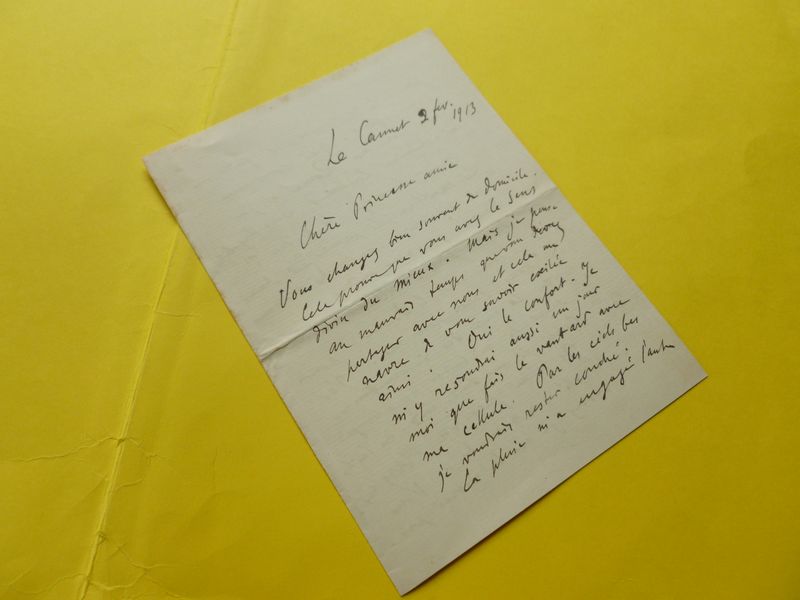 Le Cannet 2 fev. 1913
Chère Princesse amie
Vous changez bien souvent de domicile.
Cela prouve que vous avez le sens
divin du mieux. Mais je pense
au mauvais temps que vous devez
partager avec nous et cela me
navre de vous savoir exilée
ainsi. Oui le confort. Je
m'y resoudrai aussi un jour
moi que fais le vantard avec
ma cellule. Par les ciels bas
je voudrais rester couché.
La pluie m'a engagé l'autre